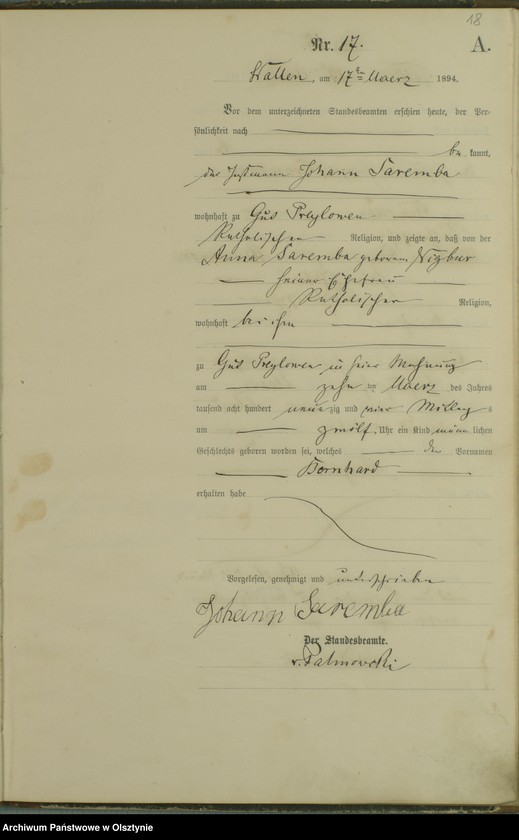 18
Nr. 17. A.
Wallen, am 17ten Maerz 1894.
Vor dem unterzeichneten Standesbeamten erschien heute, der Per-
sönlichkeit nach
be kannt,
der Instmann Johann Saremba
wohnhaft zu Gut Preylowen
Katholischen Religion, und zeigte an, daß von der
Anna Saremba geborenen
seiner Ehefrau
Katholischer Religion,
wohnhaft bei ihm
zu Gut Preylowen in seiner Wohnung
am zehn ten Maerz des Jahres
tausend acht hundert neun zig und vier Mittag s
um zwölf Uhr ein Kind männ lichen
Geschlechts geboren worden sei, welches den Vornamen
Bernhard
erhalten habe
Vorgelesen, genehmigt und unterschrieben
Johann Saremba
Der Standesbeamte.
v. Palmowski
Archiwum Państwowe w Olsztynie